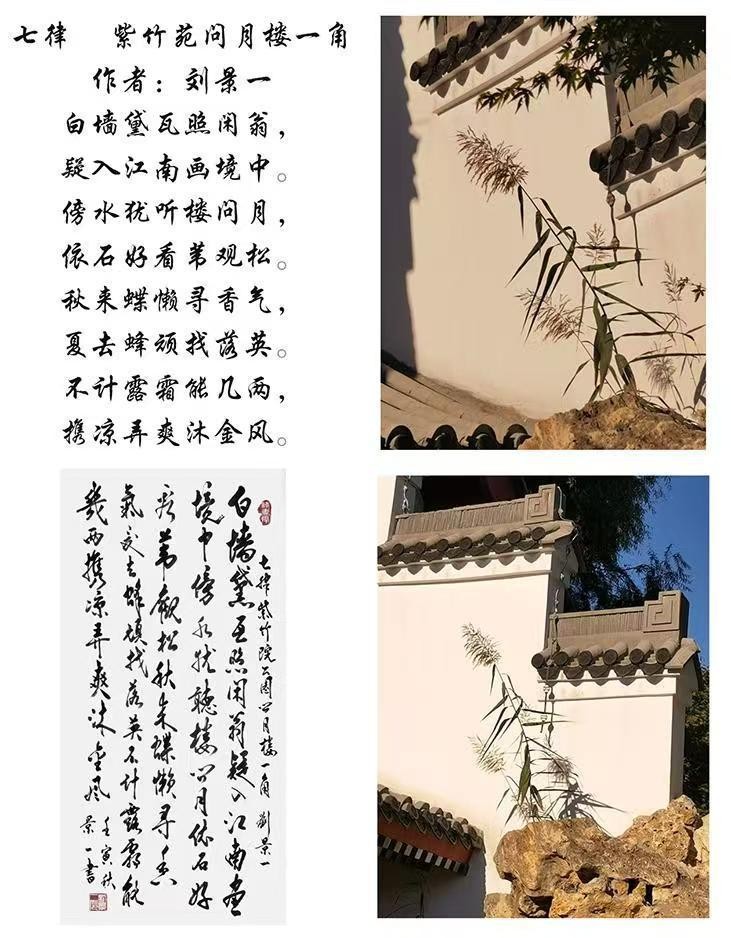 七律 紫竹苑问月楼一角
作者：刘景一
白墙黛瓦照闲翁，
疑入江南画境中。
傍水犹听楼问月，
依石好看苇观松。
秋来蝶懒寻香气，
夏去蜂顽找落英。
不计露霜能几两，
携凉弄爽沐金风。
七律紫竹院公园问月楼一角 劉景一
白墙黛瓦照闲翁疑入江南画
境中傍水犹聽楼问月依石好
看苇觀松秋来蝶懒寻香
氣夏去蜂顽找落英不计露霜能
幾两携凉弄爽沐金风
壬寅秋
景一書